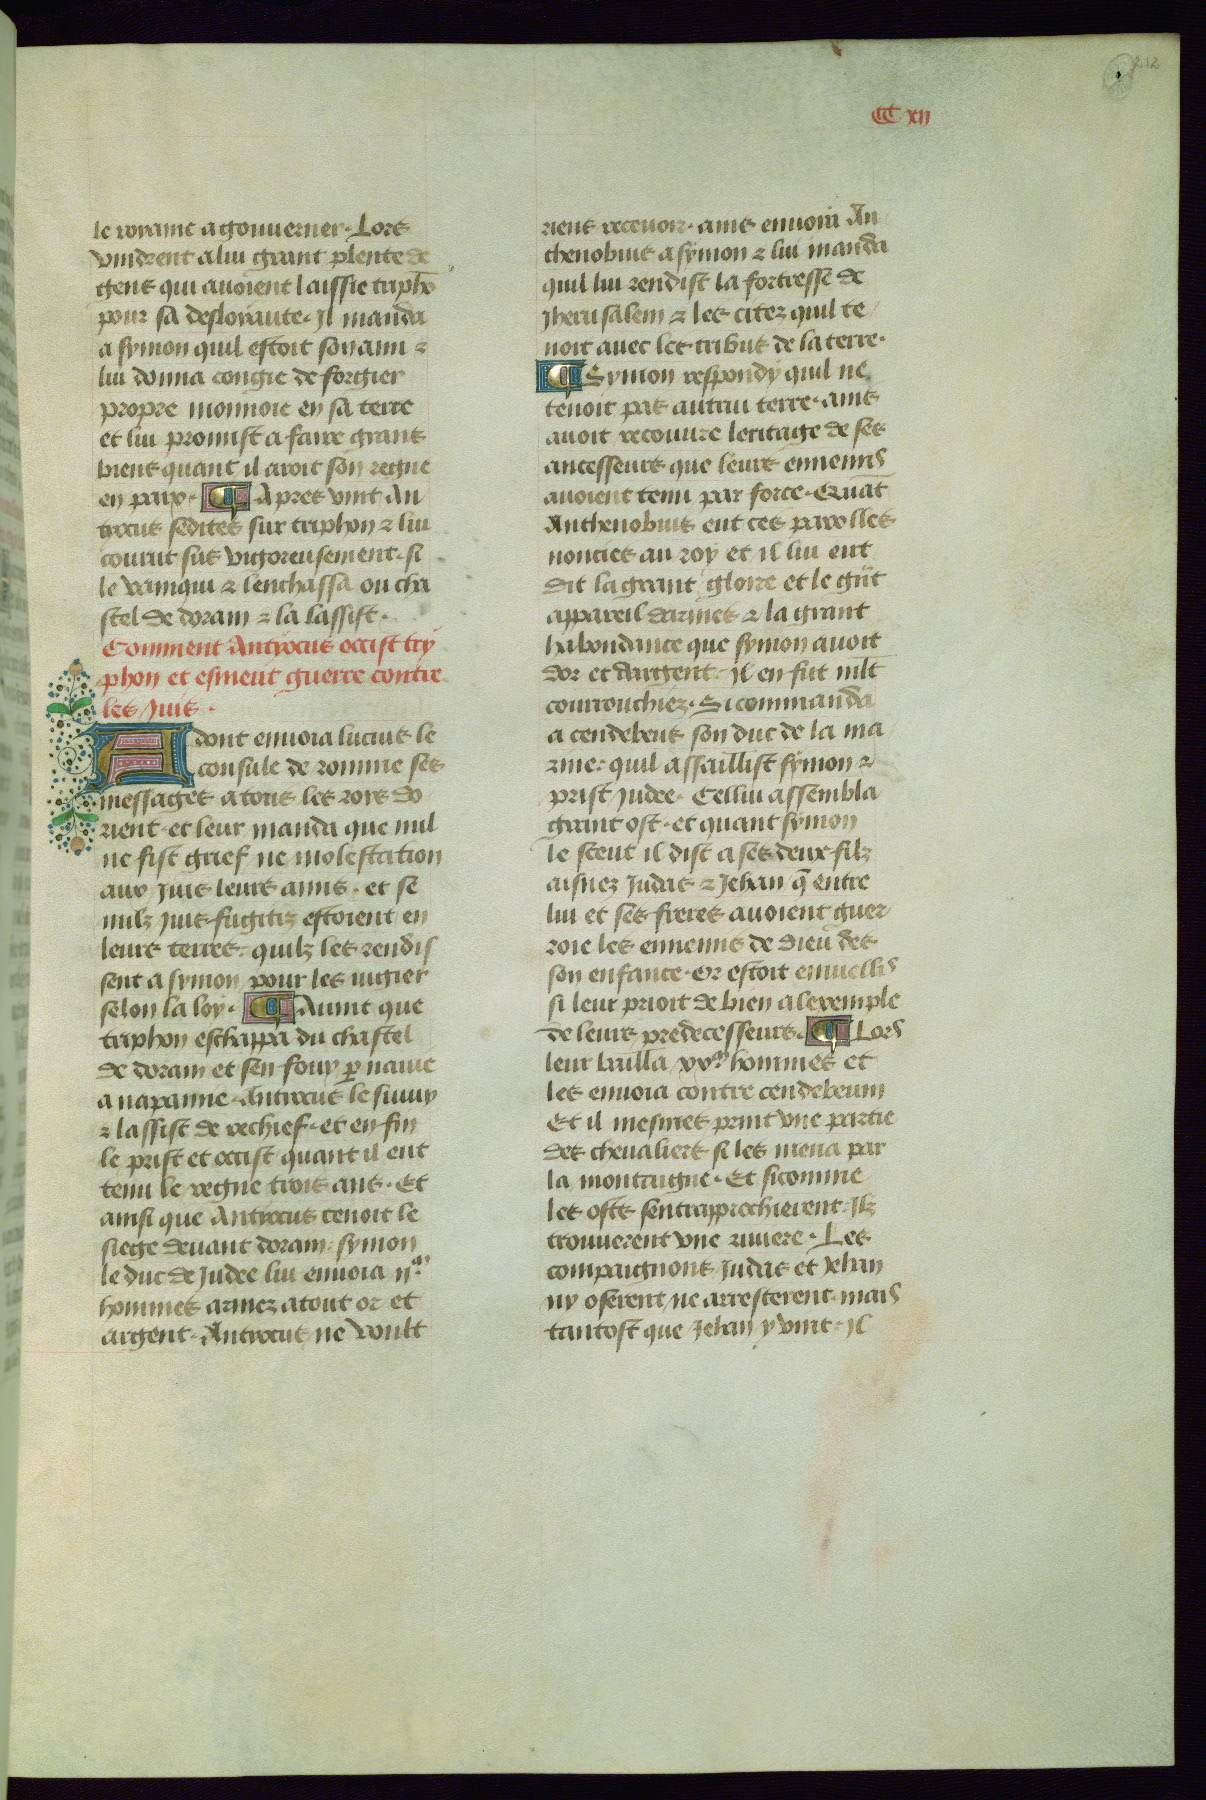 212
CC xii
le roiaume a gouuerner. Lors
vindrent a lui grant plente de
gens qui auoient laissie triphō
pour sa desloyaute. Il manda
a symon quil estoit son ami ⁊
lui donna congie de forgier
propre monnoie en sa terre
et lui promist a faire grans
biens quant il aroit son regne
en paix. ¶ Apres vint An
tiocus sedites sur triphon ⁊ lui
courut sus vigoreusement. si
le vainqui ⁊ lenchassa ou cha
stel de doram ⁊ la lassist.
Comment Antiocus occist try
phon et esmeut guerre contre
les Juis.
Adont enuoia lucius le
consule de romme ses
messages a tous les rois do
rient. et leur manda que nul
ne fist grief ne molestation
aux Juis leurs amis. et se
nulz Juis fugitiz estoient en
leurs terres. quilz les rendis
sent a symon pour les iugier
selon la loy. ¶ Auint que
triphon eschappa du chastel
de doram et sen fouy ꝑ nauie
a napanne. Antiocus le siuuy
⁊ lassist de rechief. et en fin
le prist et occist quant il eut
tenu le regne trois ans. Et
ainsi que Antiocus tenoit le
siege deuant doram. symon
le duc de Judee lui enuoia ii.ᵐ
hommes armez a tout or et
argent. Antiocus ne voult
riens receuoir. ains enuoia An
thenobius a symon ⁊ lui manda
quil lui rendist la fortresse de
Jherusalem ⁊ les citez quil te
noit auec les tribus de la terre.
¶ Symon respondy quil ne
tenoit pas autrui terre. ains
auoit recouure leritage de ses
ancesseurs que leurs ennemis
auoient tenu par force. Quāt
Anthenobius eut ces parolles
noncies au roy et il lui eut
dit la grant gloire et le gñt
appareil darmes ⁊ la grant
habondance que symon auoit
dor et dargent. Il en fut mlt
courrouchiez. Si commanda
a cendebeus son duc de la ma
rine. quil assaillist symon ⁊
prist Judee. Cellui assembla
grant ost. et quant symon
le sceut il dist a ses deux filz
aisnez Judas ⁊ Jehan q̄ entre
lui et ses freres auoient guer
roie les ennemis de dieu des
son enfance. Or estoit enuellis
si leur prioit de bien a lexemple
de leurs predecesseurs. ¶ Lors
leur bailla xx.ᵐ hommes et
les enuoia contre cendebeum
Et il mesmes print vne partie
des cheualiers si les mena par
la montaigne. Et sicomme
les osts sentrapprochierent. Ilz
trouuerent vne riuiere. Les
compaignons Judas et Jehan
ny oserent ne arresterent. mais
tantost que Jehan y vint. Il